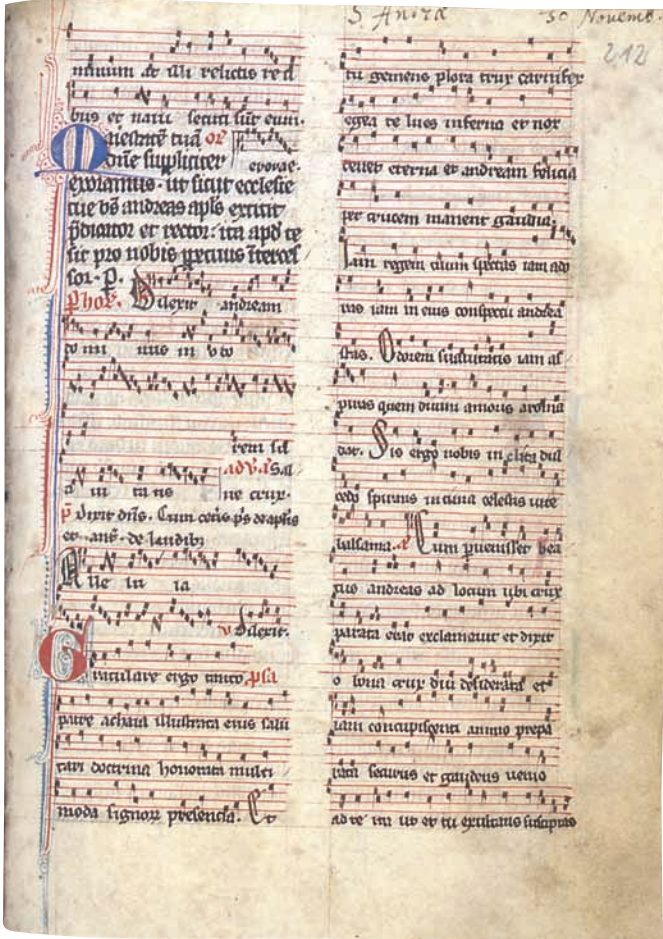 S. Andrea 30 Novemb.
212
nauim at illi relictis reti
bus et naui secuti sūt eum.
Maiestatē tuā or̄
dn̄e suppliciter euouae.
exoramus. ut sicut ecclesie
tue bs̄ andreas apls̄ extitit
p̄dicator et rector: ita apd te
sit pro nobis ꝑpetuus īterces
sor. P.
Dilexit andream
do mi nus in o do
rem sua
ad vs̄ Sal
ui ta tis ue crux.
Dixit dn̄s. Cum ceteris ps̄ de apl̄is
et an̄e. de laudibꝫ
Alle lu ia
v Dilexit.
Gratulare ergo tanto psa
patre achaia illustrata eius salu
tari doctrina honorata multi
moda signoꝝ presencia. Et
tu gemens plora trux carnifex
egea te lues inferna et mox
tenet eterna et andream felicia
per crucem manent gaudia.
Iam regem tuum spectas iam ado
ras iam in eius conspectu andrea
stas. Odorem suauitatis iam as
piras quem diuini amoris aroma
dat. Sis ergo nobis inclita dul
cedo spirans intima celestis uite
balsama. Cum ꝑuenisset bea
tus andreas ad locum ubi crux
parata erat exclamauit et dixit
o bona crux diu desiderata et
iam concupiscenti animo prepa
rata securus et gaudens uenio
ad te ita ut et tu exultans suscipias